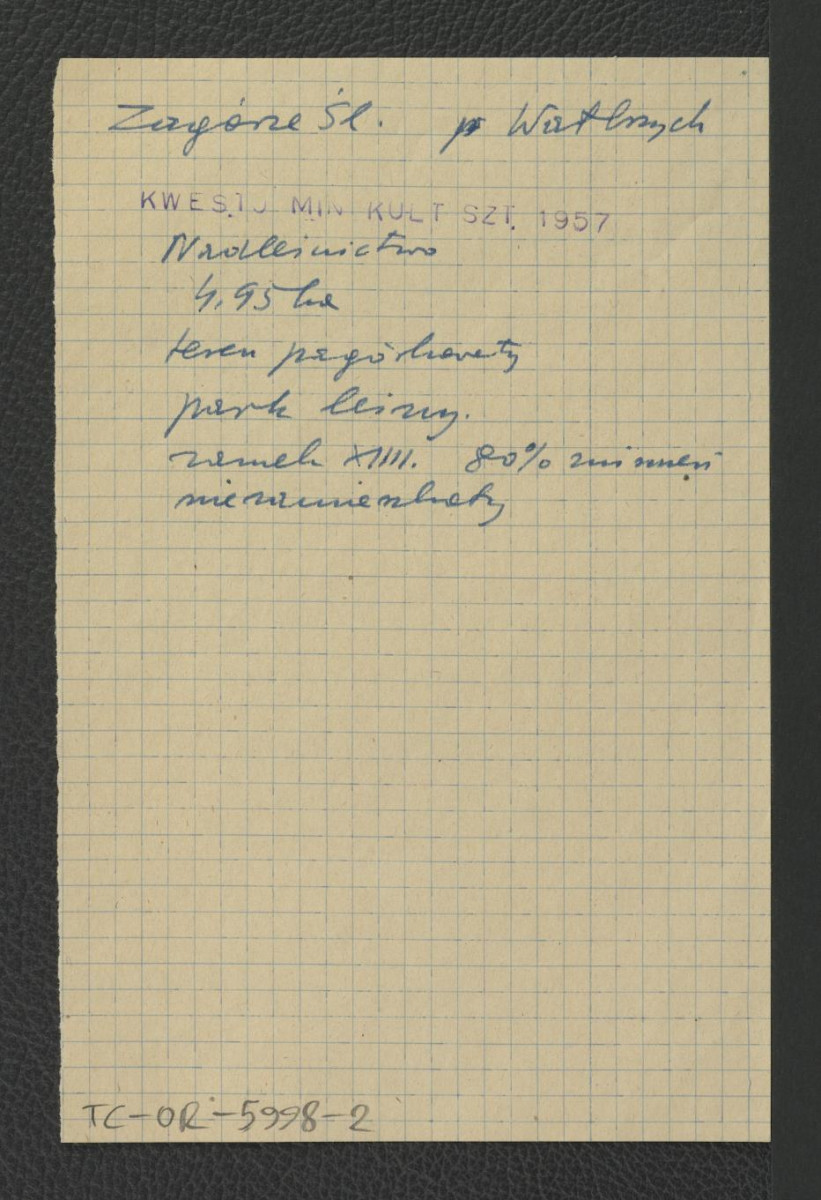 Zagórze Śl. p Wałbrzych
KWESTJ MIN KULT SZT. 1957
Nadleśnictwo
4,95 ha
teren pagórkowaty
park leśny.
zamek XIII. 80% zniszczeń
niezamieszkały
TC-OR-5998-2